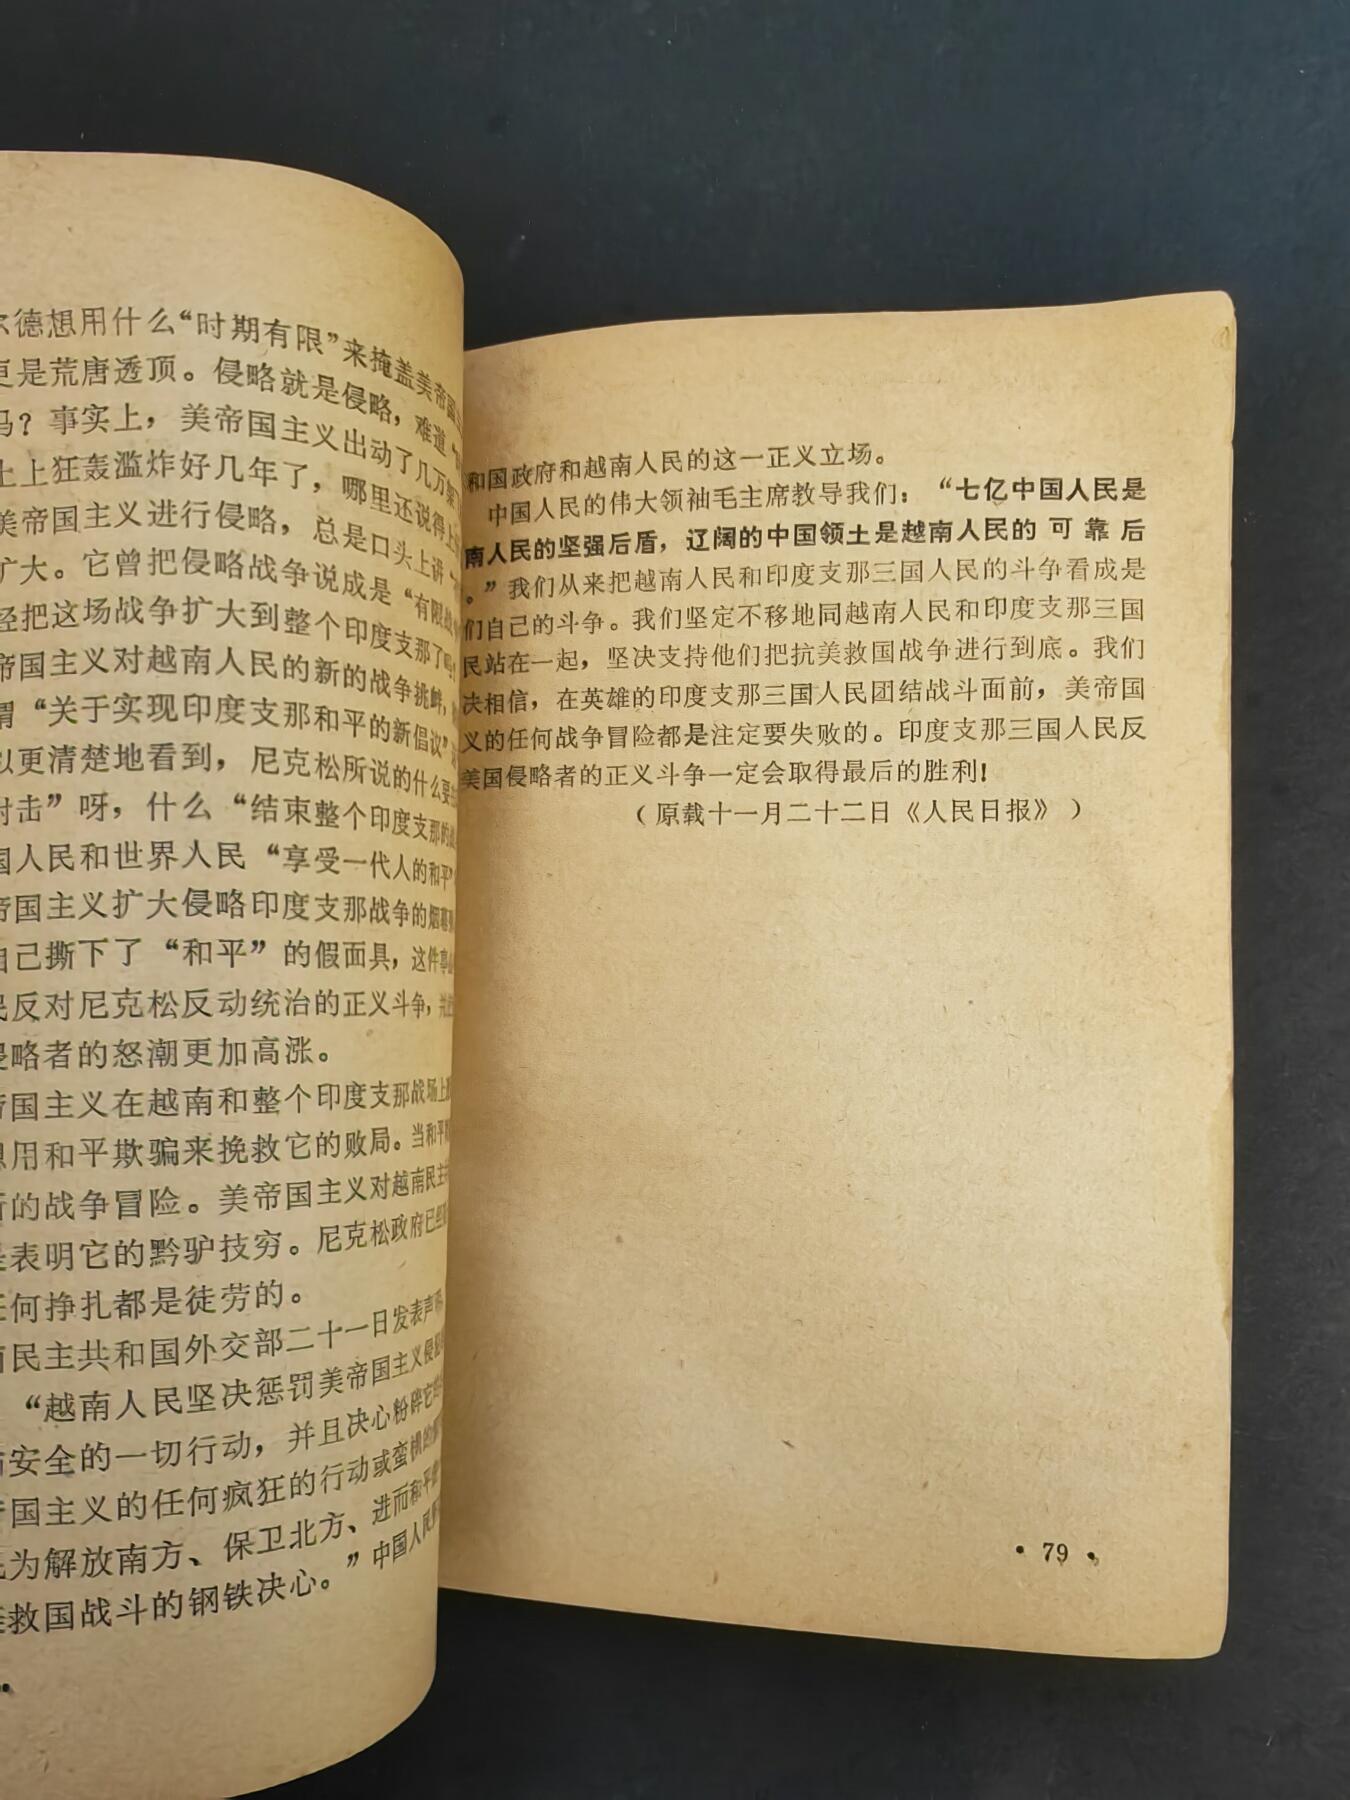 德想用什么“时期有限”来掩盖美帝国
是荒唐透顶。侵略就是侵略，难道“
吗？事实上，美帝国主义出动了几万架
上狂轰滥炸好几年了，哪里还说得上
美帝国主义进行侵略，总是口头上讲“
扩大。它曾把侵略战争说成是“有限战
经把这场战争扩大到整个印度支那了吗
帝国主义对越南人民的新的战争挑衅，
谓“关于实现印度支那和平的新倡议”
以更清楚地看到，尼克松所说的什么要
射击”呀，什么“结束整个印度支那的
国人民和世界人民“享受一代人的和平”
帝国主义扩大侵略印度支那战争的烟幕
自己撕下了“和平”的假面具，这件事
民反对尼克松反动统治的正义斗争，
侵略者的怒潮更加高涨。
帝国主义在越南和整个印度支那战场上
想用和平欺骗来挽救它的败局。当和平
新的战争冒险。美帝国主义对越南民主
是表明它的黔驴技穷。尼克松政府已经
任何挣扎都是徒劳的。
南民主共和国外交部二十一日发表声明
“越南人民坚决惩罚美帝国主义侵犯
安全的一切行动，并且决心粉碎它
帝国主义的任何疯狂的行动或蛮横的
为解放南方、保卫北方、进而和平
救国战斗的钢铁决心。”中国人民
和国政府和越南人民的这一正义立场。
中国人民的伟大领袖毛主席教导我们：“七亿中国人民是
南人民的坚强后盾，辽阔的中国领土是越南人民的可靠后
。”我们从来把越南人民和印度支那三国人民的斗争看成是
们自己的斗争。我们坚定不移地同越南人民和印度支那三国
民站在一起，坚决支持他们把抗美救国战争进行到底。我们
决相信，在英雄的印度支那三国人民团结战斗面前，美帝国
义的任何战争冒险都是注定要失败的。印度支那三国人民反
美国侵略者的正义斗争一定会取得最后的胜利！
（原载十一月二十二日《人民日报》）
• 79 •